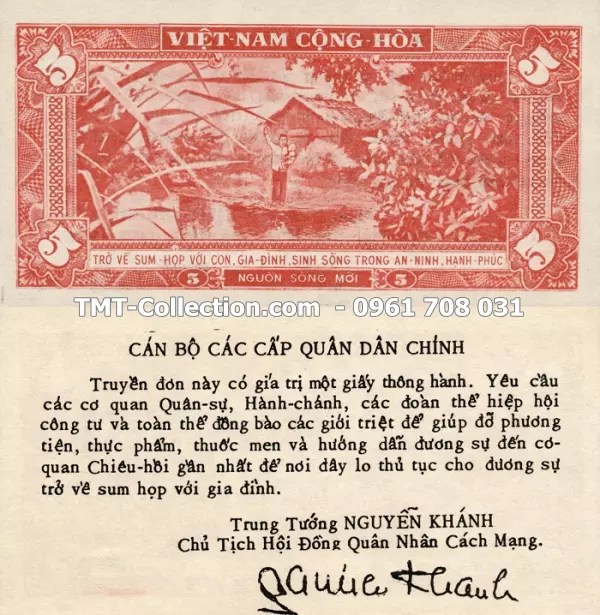 VIỆT-NAM CỘNG-HÒA
5 5
TRỞ VỀ SUM-HỌP VỚI CON, GIA-ĐÌNH, SINH SỐNG TRONG AN-NINH, HẠNH-PHÚC
5 5
5 NGUỒN SỐNG MỚI 5
TMT-Collection.com - 0961 708 031
CÁN BỘ CÁC CẤP QUÂN DÂN CHÍNH
Truyền đơn này có gía trị một giấy thông hành. Yêu cầu
các cơ quan Quân-sự, Hành-chánh, các đoàn thể hiệp hội
công tư và toàn thể đồng bào các giới triệt để giúp đỡ phương
tiện, thực phẩm, thuốc men và hướng dẫn đương sự đến cơ-
quan Chiêu-hồi gần nhất để nơi đây lo thủ tục cho đương sự
trở về sum họp với gia đình.
Trung Tướng NGUYỄN KHÁNH
Chủ Tịch Hội Đồng Quân Nhân Cách Mạng.
Khanh